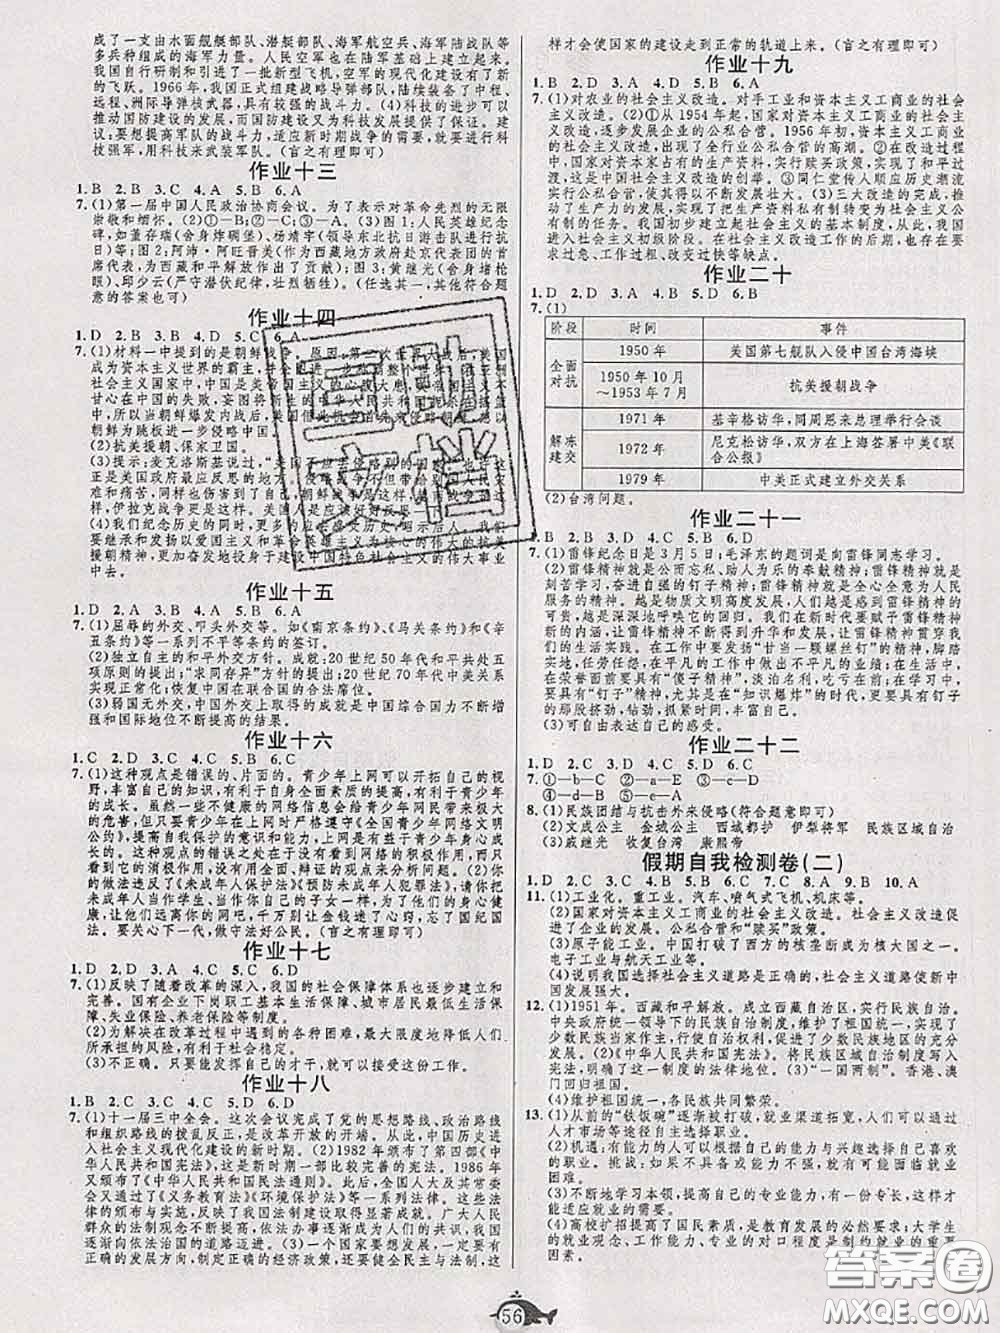 成了一支由水面舰艇部队、潜艇部队、海军航空兵、海军陆战队等
多兵种组成的海军力量。人民空军也在陆军基础上建立起来。
我国自行研制和引进了一批新型飞机,空军的现代化建设有了新
的飞跃。1966年,我国正式组建战略导弹部队,陆续装备了中程、
远程、洲际导弹核武器,具有较强的战斗力。(4)科技的进步可以
推动国防建设的发展,而国防建设又为科技发展提供了保证。建
议:要想提高军队的战斗力,适应新时期战争的需要,就要进行科
技强军,用科技来武装军队。(言之有理即可)
作业十三
1.B 2.B 3.C 4.A 5.B 6.A
7.(1)第一届中国人民政治协商会议。为了表示对革命先烈的无限
崇敬和缅怀。(2)①—B;②—C;③—A。(3)图1:人民英雄纪念
碑,如董存瑞(舍身炸碉堡)、杨靖宇(领导东北抗日游击队进行抗
日)等;图2:阿沛·阿旺晋美(作为西藏地方政府赴京代表团的首
席代表,为西藏和平解放作出了贡献);图3:黄继光(舍身堵枪
眼)、邱少云(严守潜伏纪律,壮烈牺牲)。(任选其一,其他符合题
意的答案也可)
作业十四
1.D 2.D 3.B 4.D 5.C 6.A
7.(1)材料一中提到的是朝鲜战争。原因:第二次世界大战后,美国
成为资本主义世界的霸主,
社会主义国家中,中国是美帝国主义的心腹大患,
甘心在中国的失败,妄图将新
时,当朝鲜爆发内战后,美国
朝鲜为跳板进一步侵略中国。
(2)抗美援朝、保家卫国。
(3)提示:麦克洛斯基说过,“美国
正是美国政府最应反思的地方,
难和痛苦,同样也伤害到了自己,朝鲜战争是这样,
伊拉克战争更是这样。美国人是应该好好反思一下
(4)我们纪念历史的同时,更多
要继承和发扬以爱国主义和革命英雄主义为核心的伟大的抗美
援朝精神,更加奋发地投身于建设中国特色社会主义的伟大事业
中去。
作业十五
1.D 2.A 3.B 4.D 5.B 6.A
7.(1)屈辱的外交、叩头外交等。如《南京条约》、《马关条约》和《辛
丑条约》等一系列不平等条约的签订。
(2)独立自主的和平外交方针。成就:20世纪50年代和平共处五
项原则的提出;“求同存异”方针的提出;20世纪70年代中美关系
实现正常化;恢复中国在联合国的合法席位。
(3)弱国无外交,中国外交上取得的成就是中国综合国力不断增
强和国际地位不断提高的结果。
作业十六
1.C 2.C 3.B 4.B 5.B 6.C
7.(1)这种观点是错误的、片面的。青少年上网可以开拓自己的视
野,丰富自己的知识,有利于自身全面素质的提高,有利于青少年
的成长。虽然一些不健康的网络信息会给青少年网民带来极大
的危害,但只要青少年在上网时严格遵守《全国青少年网络文明
公约》,提高自我保护的意识和能力,上网是有百利而无一害的。
该观点只看到了上网的消极作用,没有看到网络的积极作用,而
且它的消极作用,没有用全面、辩证的观点来分析问题。(2)你们
的做法违反了《未成年人保护法》《预防未成年人犯罪法》,请你你
把未成年人当作学生、当作你自己的子女一样,为了他们的身心健
康,让他们远离你的网吧,千万别让金钱利欲熏心,忘了国纪国
法。要关心下一代,做守法好公民。(言之有理即可)
作业十七
1.D 2.D 3.A 4.C 5.C 6.D
7.(1)反映了随着改革的深入,我国的社会保障体系也逐步建立和
完善。国有企业下岗职工基本生活保障、城市居民最低生活保
障、失业保险、养老保险等制度。
(2)为解决在改革过程中遇到的各种困难,最大限度地降低人们
所承担的风险,有利于社会稳定。
(3)不正确。只要能发挥自己的才干,就可以接受这份工作。
作业十八
1.B 2.C 3.B 4.A 5.D 6.D
7.(1)十一届三中全会。这次会议完成了党的思想路线、政治路线
和组织路线的拨乱反正,是改革开放的开端。从此,中国历史进
入社会主义现代化建设的新时期。(2)1982年颁布了第四部《中
华人民共和国宪法》,这是新时期一部比较完善的宪法。1986年
又颁布了《中华人民共和国民法通则》。此后,全国人大及其常委
会又通过了《义务教育法》《环境保护法》等一系列法律。这些法
律的颁布与实施,反映了我国法制建设取得显著成就。广大人民
群众的法制观念不断提高,依法办事逐渐成为人们的共识,我国
走上依法治国的道路迈进。(3)一个国家要想发展,一定要有
正确的发展方向,制定正确的经济政策,还要健全民主与法制,这
样才会使国家的建设走到正常的轨道上来。(言之有理即可)
作业十九
1.B 2.D 3.A 4.D 5.B 6.A
7.(1)对农业的社会主义改造。对手工业和资本主义工商业的社会
主义改造。(2)①从1954年起,国家对资本主义工商业的社会主
义改造,逐步发展企业的公私合营。1956年初,资本主义工商业
的社会主义改造,出现了全行业公私合营的高潮。②在改造过程
中,国家对资本家占有的生产资料,实行赎买政策,实现了和平过
渡,这是中国社会主义改造的创举。③同仁堂传人顺应历史潮流
实行公私合营,使其得以不断发展壮大。(3)三大改造的完成,推
动了生产力的发展,实现了把生产资料私有制转变为社会主义公
有制的任务。我国初步建立起社会主义的基本制度,从此,我国
进入社会主义初级阶段。在社会主义改造工作的后期,也存在要
求过急、工作过程、改变过快等缺点。
作业二十
1.B 2.D 3.A 4.D 5.D 6.B
7.(1)
阶段 时间 事件
全面对抗 1950年 美国第七舰队入侵中国台湾海峡
1950年10月~1953年7月 抗美援朝战争
解冻建交 1971年 基辛格访华,同周恩来总理举行会谈
1972年 尼克松访华,双方在上海签署中美《联合公报》
1979年 中美正式建立外交关系
(2)台湾问题。
作业二十一
1.D 2.C 3.D 4.B 5.C 6.D
7.(1)雷锋纪念日是3月5日;毛泽东的题词是向雷锋同志学习。
(2)雷锋精神就是公而忘私、助人为乐的奉献精神;雷锋精神就是
刻苦学习、奋发进取的钉子精神;雷锋精神就是全心全意为人民
服务的精神。越是物质文明高度发展,人们越能感到雷锋精神的
可贵,越是深深地呼唤它的回归。我们在新时代要赋予雷锋精神
新的内涵,让雷锋精神不断得到升华和发展,让雷锋精神贯穿我
们的生活实践。在工作中要发扬“甘当一颗螺丝钉”的精神,脚踏
实地、任劳任怨,在平凡的工作中做出不平凡的业绩;在生活中,
在荣誉面前要具有“傻子精神”,淡泊名利,吃亏在前,享乐在后;
要具有“钉子”精神,尤其是在“知识爆炸”的时代,更要具有钉子
的那股挤劲,钻劲,抓紧时间,丰富自己。
(3)可自由表达自己的感受。
作业二十二
1.D 2.C 3.D 4.C 5.B 6.C
7.①—b—C ②—a—E ③—c—A
④—d—B ⑤—e—D
8.(1)民族团结与抗击外来侵略(符合题意即可)
(2)文成公主 金城公主 西域都护 伊犁将军 民族区域自治
(3)戚继光 收复台湾 康熙帝
假期自我检测卷(二)
1.D 2.C 3.C 4.C 5.D 6.B 7.C 8.A 9.B 10.A
11.(1)工业化。重工业。汽车、喷气式飞机、机床等。
(2)国家对资本主义工商业的社会主义改造。社会主义改造促
进了企业的发展。公私合营和“赎买”政策。
(3)原子能工业。中国打破了西方的核垄断成为核大国之一。
电子工业与航天工业等。
(4)说明我国选择社会主义道路是正确的,社会主义道路使新中
国发展强大。
12.(1)1951年。西藏和平解放。成立西藏自治区,实行民族自治。
中央政府统一领导下的民族自治制度,维护了祖国统一,实现了
少数民族当家作主,行使民主权利,促进了少数民族地区的充分
发展。(2)《中华人民共和国宪法》。将民族区域自治制度写入
宪法,明确了这一制度的法律地位。(3)“一国两制”。香港、澳
门回归祖国。
(4)维护祖国统一,各民族共同繁荣。
13.(1)从前的“铁饭碗”逐渐被打破,就业渠道拓宽,人们可以通过
人才市场等途径自主选择职业。
(2)机遇:有能力的人可以根据自己的能力与兴趣选择自己喜欢
的职业。挑战:如果不具备或能力不强,有可能面临就业
困难。
(3)不断地学习本领,提高自己的专业能力,有一份专长,这样才
能适应就业的需要。
(4)高校扩招提高了国民素质,是教育发展的必然要求;大学生
的就业观念、工作能力、专业的对口程度是制约就业的重要
因素。
56
答案圈
MXQE.COM